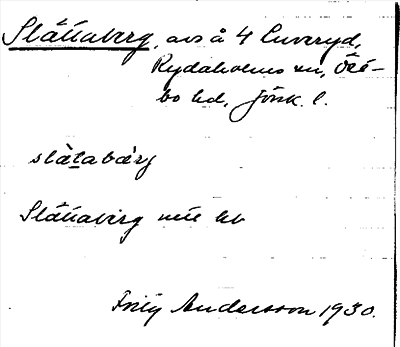 Slättaberg, avs å 4 Luveryd,
Rydaholms sn, Öst-
bo hd, Jönk. l.
slàtabärg
Slättaberg
Andersson 1930.